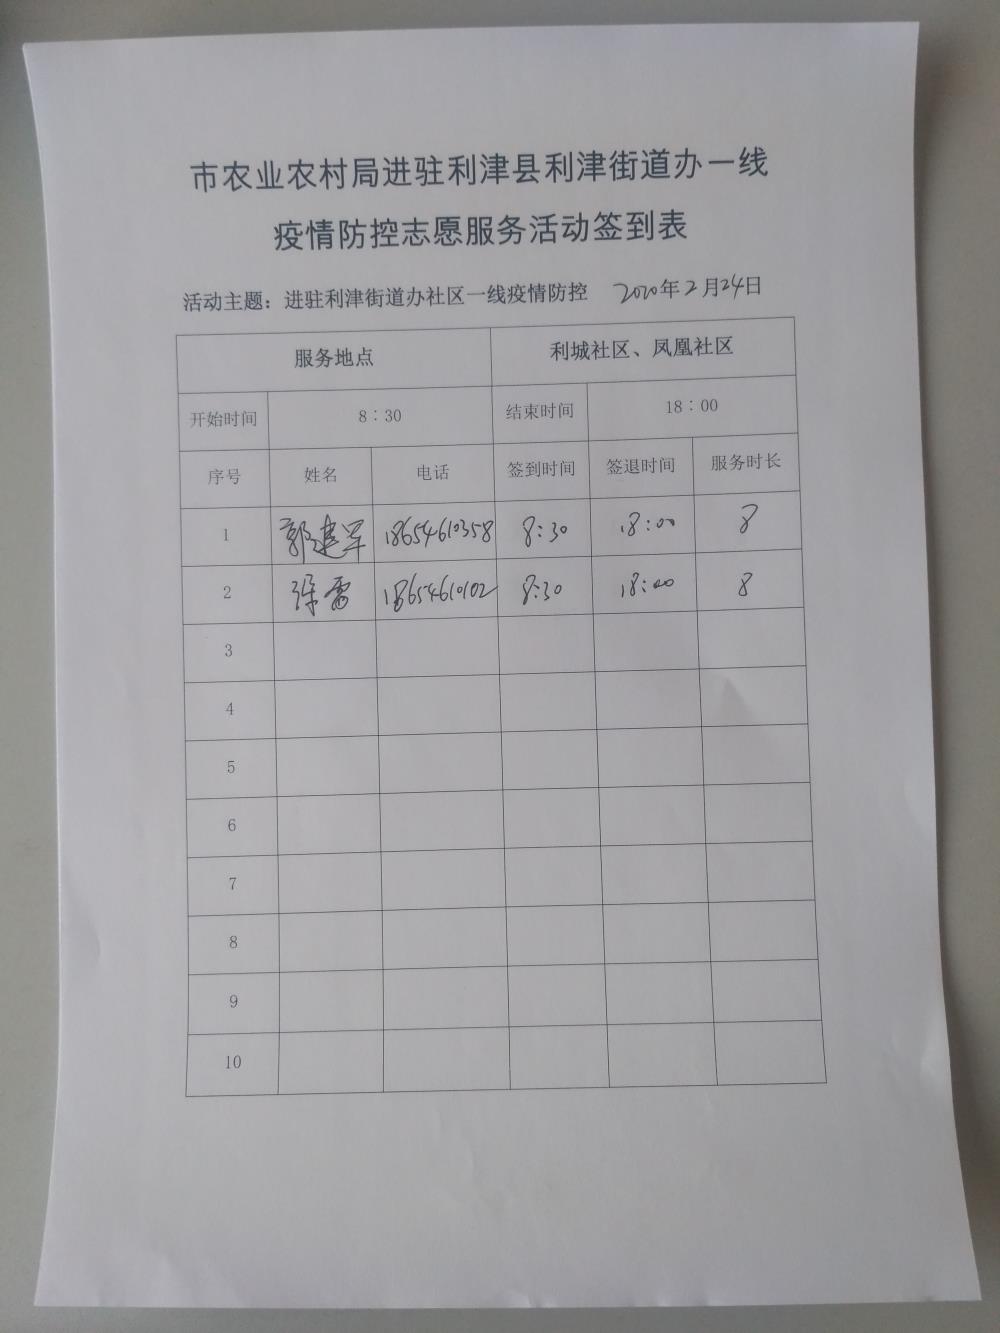 市农业农村局进驻利津县利津街道办一线
疫情防控志愿服务活动签到表
活动主题：进驻利津街道办社区一线疫情防控 2020年2月24日
服务地点 利城社区、凤凰社区
开始时间 8：30 结束时间 18：00
序号 姓名 电话 签到时间 签退时间 服务时长
1 郭建军 18654610358 8:30 18:00 8
2 徐雷 18654610102 8:30 18:00 8
3
4
5
6
7
8
9
10